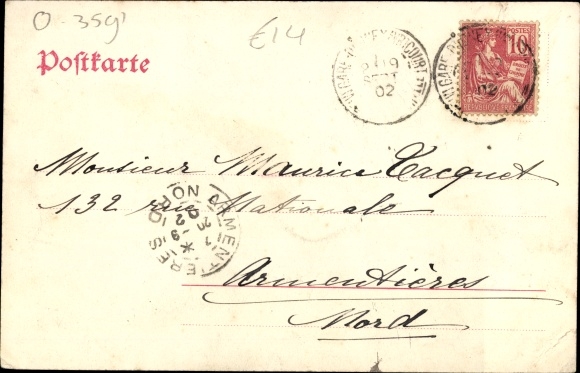 0-359'
€14
Postkarte
10
POSTES
02
Monsieur Maurice Cacquet
132 rue Nationale
ARMENTIERES
NORD
Armentières
Nord